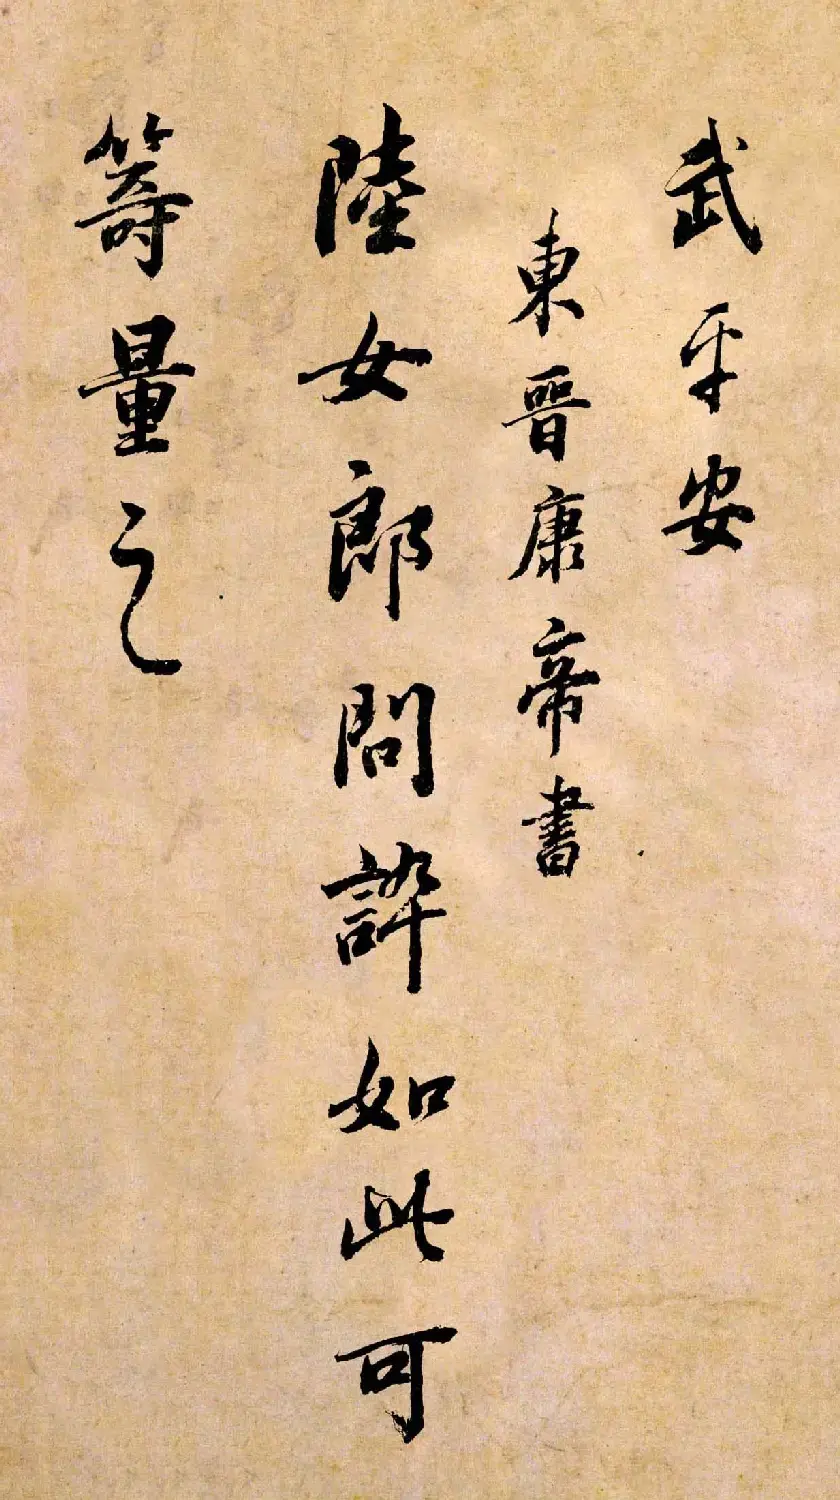 武平安
東晉康帝書
陸女郎問誶如此可
籌量之